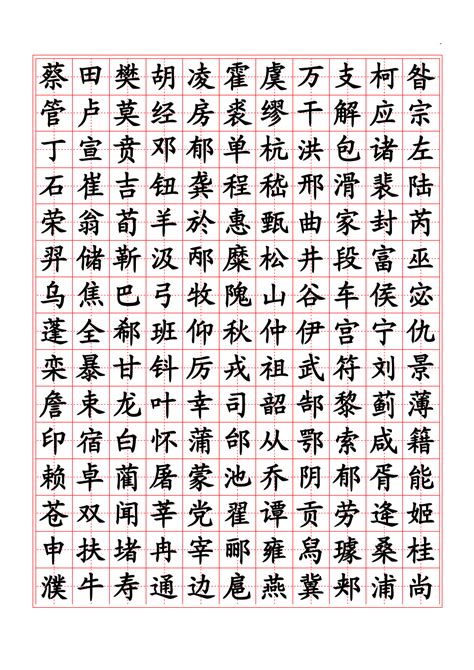 蔡田樊胡凌霍虞万支柯昝
管卢莫经房裘缪干解应宗
丁宣贲邓郁单杭洪包诸左
石崔吉钮龚程嵇邢滑裴陆
荣翁荀羊於惠甄曲家封芮
羿储靳汲邴糜松井段富巫
乌焦巴弓牧隗山谷车侯宓
蓬全郗班仰秋仲伊宫宁仇
栾暴甘钭厉戎祖武符刘景
詹束龙叶幸司韶郜黎蓟薄
印宿白怀蒲邰从鄂索咸籍
赖卓蔺屠蒙池乔阴郁胥能
苍双闻莘党翟谭贡劳逄姬
申扶堵冉宰郦雍舄璩桑桂
濮牛寿通边扈燕冀郏浦尚